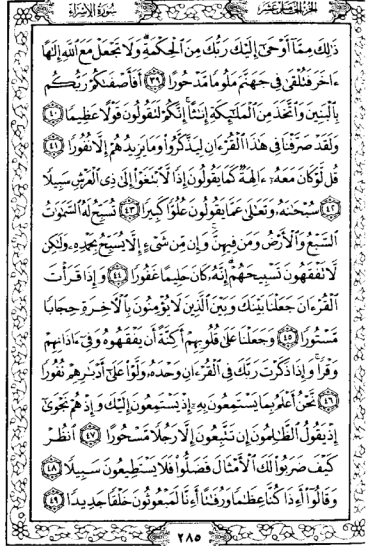 الجزء الخامس عشر
سورة الإسراء
ذَٰلِكَ مِمَّآ أَوْحَىٰٓ إِلَيْكَ رَبُّكَ مِنَ ٱلْحِكْمَةِ وَلَا تَجْعَلْ مَعَ ٱللَّهِ إِلَٰهًا
ءَاخَرَ فَتُلْقَىٰ فِى جَهَنَّمَ مَلُومًا مَّدْحُورًا ٣٩ أَفَأَصْفَىٰكُمْ رَبُّكُم
بِٱلْبَنِينَ وَٱتَّخَذَ مِنَ ٱلْمَلَٰٓئِكَةِ إِنَٰثًا إِنَّكُمْ لَتَقُولُونَ قَوْلًا عَظِيمًا ٤٠
وَلَقَدْ صَرَّفْنَا فِى هَٰذَا ٱلْقُرْءَانِ لِيَذَّكَّرُوا۟ وَمَا يَزِيدُهُمْ إِلَّا نُفُورًا ٤١
قُل لَّوْ كَانَ مَعَهُۥٓ ءَالِهَةٌ كَمَا يَقُولُونَ إِذًا لَّٱبْتَغَوْا۟ إِلَىٰ ذِى ٱلْعَرْشِ سَبِيلًا
٤٢ سُبْحَٰنَهُۥ وَتَعَٰلَىٰ عَمَّا يَقُولُونَ عُلُوًّا كَبِيرًا ٤٣ تُسَبِّحُ لَهُ ٱلسَّمَٰوَٰتُ
ٱلسَّبْعُ وَٱلْأَرْضُ وَمَن فِيهِنَّ وَإِن مِّن شَىْءٍ إِلَّا يُسَبِّحُ بِحَمْدِهِۦ وَلَٰكِن
لَّا تَفْقَهُونَ تَسْبِيحَهُمْ إِنَّهُۥ كَانَ حَلِيمًا غَفُورًا ٤٤ وَإِذَا قَرَأْتَ
ٱلْقُرْءَانَ جَعَلْنَا بَيْنَكَ وَبَيْنَ ٱلَّذِينَ لَا يُؤْمِنُونَ بِٱلْأَخِرَةِ حِجَابًا
مَّسْتُورًا ٤٥ وَجَعَلْنَا عَلَىٰ قُلُوبِهِمْ أَكِنَّةً أَن يَفْقَهُوهُ وَفِىٓ ءَاذَانِهِمْ
وَقْرًا وَإِذَا ذَكَرْتَ رَبَّكَ فِى ٱلْقُرْءَانِ وَحْدَهُۥ وَلَّوْا۟ عَلَىٰٓ أَدْبَٰرِهِمْ نُفُورًا
٤٦ نَّحْنُ أَعْلَمُ بِمَا يَسْتَمِعُونَ بِهِۦٓ إِذْ يَسْتَمِعُونَ إِلَيْكَ وَإِذْ هُمْ نَجْوَىٰٓ
إِذْ يَقُولُ ٱلظَّٰلِمُونَ إِن تَتَّبِعُونَ إِلَّا رَجُلًا مَّسْحُورًا ٤٧ ٱنظُرْ
كَيْفَ ضَرَبُوا۟ لَكَ ٱلْأَمْثَالَ فَضَلُّوا۟ فَلَا يَسْتَطِيعُونَ سَبِيلًا ٤٨
وَقَالُوٓا۟ أَءِذَا كُنَّا عِظَٰمًا وَرُفَٰتًا أَءِنَّا لَمَبْعُوثُونَ خَلْقًا جَدِيدًا ٤٩
٢٨٥